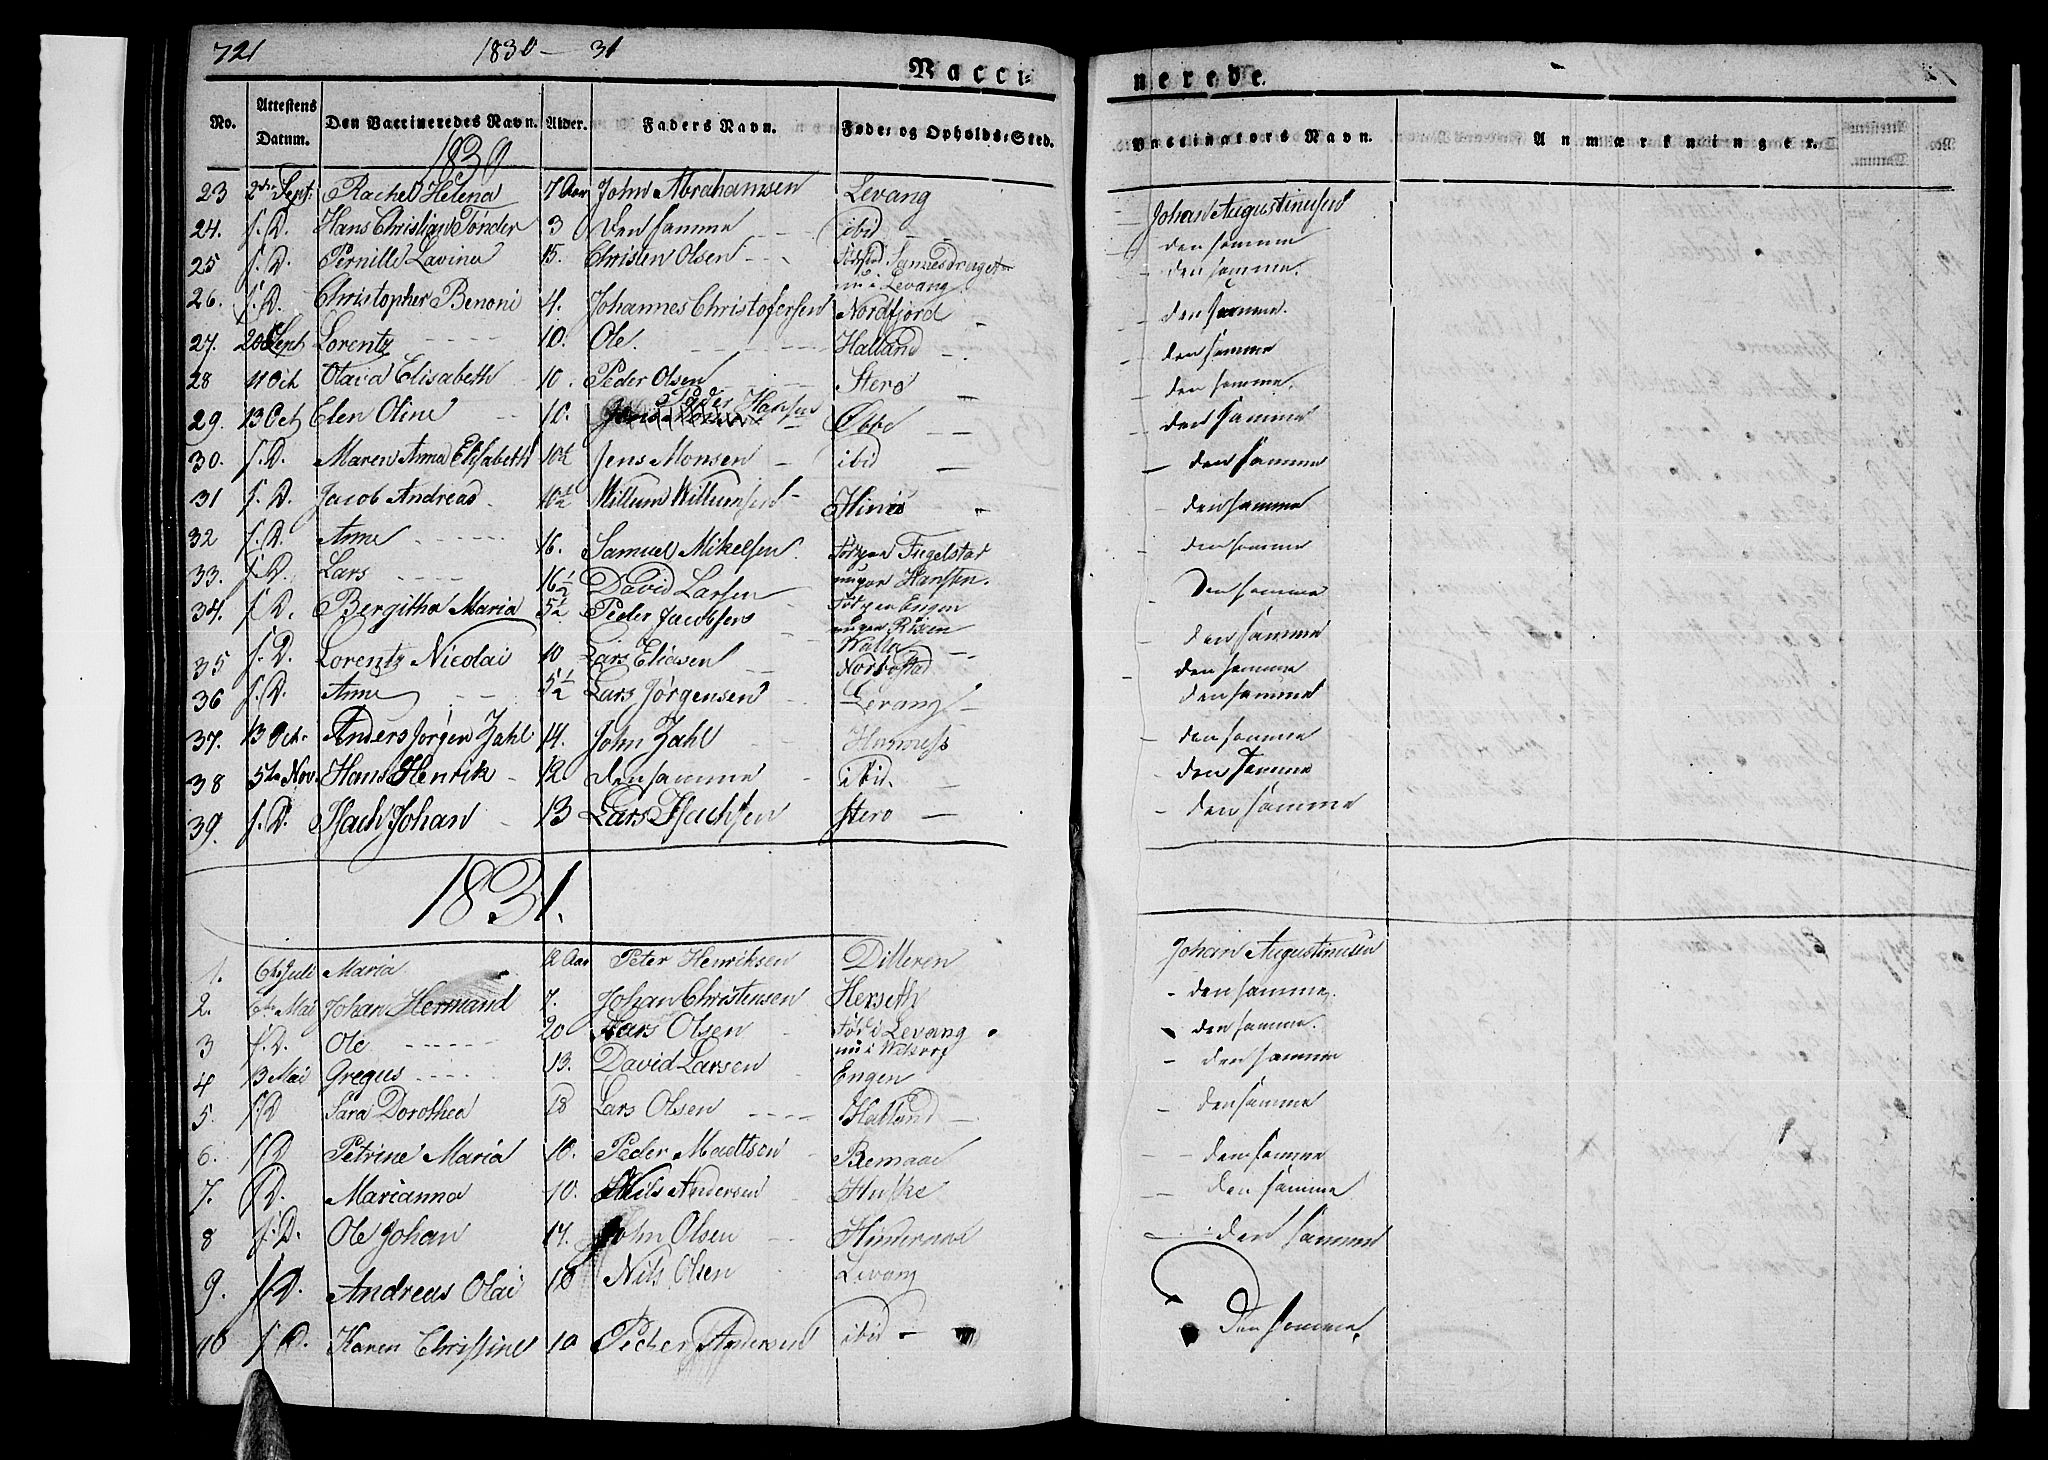 721 1830 — 31
Vacci= nerede.
No. Attestens Datum. Den Vaccineredes Navn. Alder. Faders Navn. Føde= og Opholds=Sted. Vaccinators Navn. Anmærkninger.
1830
23 2den Sept: Rachel Helena 7 Aar John Abrahamsen Levang Johan Augustinusen
24. s. D. Hans Christian Tønder 3 Den samme ibid — den samme
25 s. D. Pernille Lavina 15. Christen Olsen Fødested nu i Levang — den samme.
26. s. D. Christopher Benoni 4. Johannes Christofersen Nordfjord — den samme.
27. 20 Sept Lorentz 10. Ole Halland — den samme
28 11 Oct Olava Elisabeth 10. Peder Olsen Sterø — den samme.
29. 13 Oct Elen Oline 10. Peder Hansen Øbbe — den samme
30. s. D. Maren Anna Elisabeth 10½ Jens Monsen ibid — den samme
31 s. D. Jacob Andreas 10½ Willum Willumsen — den samme
32 s. D. Anne 16. Samuel Mikelsen Fød paa Fugelstad — den samme
33. s. D. Lars 16½ David Larsen nu paa Hansten. Den samme
34. s. D. Bergitha Maria 5½ Peder Jacobsen Fød paa Engen nu paa Risen — den samme
35 s. D. Lorentz Nicolai 10 Lars Eliasen Walla — den samme
36 s. D. Anne 5½ Lars Jørgensen Norbostad Levang — den samme
37. 13 Octr Anders Jørgen Zahl 14. John Zahl — den samme
38 5te Nov. Hans Henrik 12. den samme ibid. — den samme
39. s. D. Isach Johan 13 Lars Isachsen Sterø — den samme
1831.
1. 6te Juli Maria 12 Aar Peter Henriksen Dilleren Johan Augustinusen
2. 6te Mai Johan Hermand 7. Johan Christensen Herseth — den samme.
3 s. D. Ole 20 Lars Olsen Fød i Levang — den samme.
4 13 Mai Gregus 13. David Larsen Engen — den samme
5. s. D Sara Dorothea 18 Lars Olsen Halland — den samme
6. s. D Petrine Maria 10. Peder Madtsen Remaae — den samme
7. s. D. Marianna 10. Nils Andersen Huske — den samme
8 s. D. Ole Johan 14. John Olsen — den samme
9. s. D. Andreas Olai 10 Nils Olsen Levang
10 s. D. Karen Christine 10 Peder Andersen ibid — Den samme.